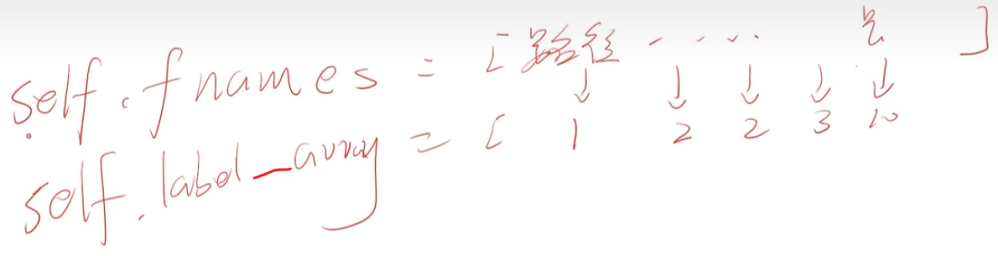 self.fnames = [路径 - - . . . ]
↓ ↓ ↓ ↓ ↓
self.label_array = [ 1 2 2 3 10